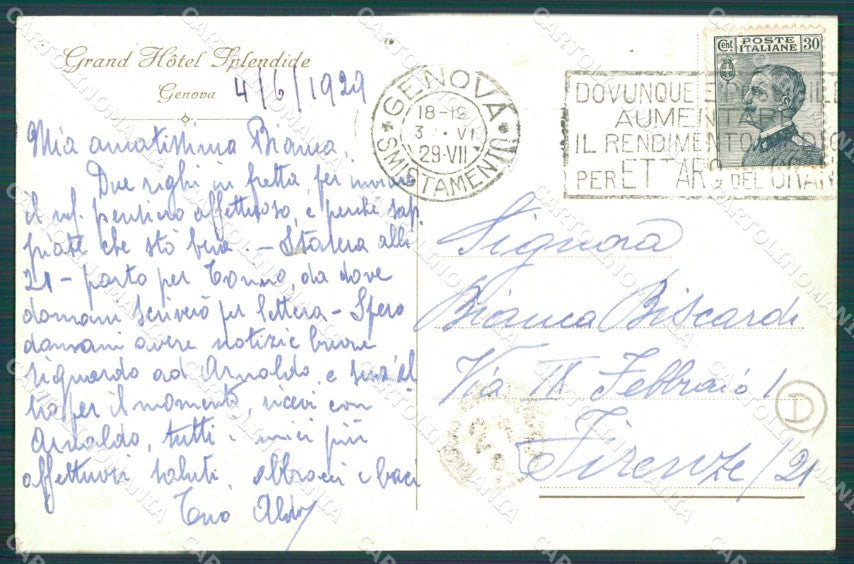 Grand Hôtel Splendide
Genova
4/6/1929
Mia amatissima Bianca
Due righi in fretta per inviarti
il mio pensiero affettuoso, e perché sap-
piate che stò bene. - Stasera alle
21 - parto per Torino, da dove
domani scriverò per lettera - Spero
domani avere notizie buone
riguardo ad Arnaldo, e senz'al
tro per il momento, ricevi con
Arnaldo, tutti i miei più
affettuosi saluti, abbracci e baci
Tuo Aldo
GENOVA
18-19
3 · VI
29·VII
SMISTAMENTO
DOVUNQUE
AUMENTARE
IL RENDIMENTO
PER ETTARO DEL GRANO
Cent POSTE ITALIANE 30
Signora
Bianca Biscardi
Via IX Febbraio 1
Firenze/21
D
CARTOLINOMANIA